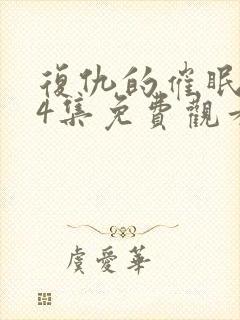 復仇的催眠
4集免費觀
虞愛華